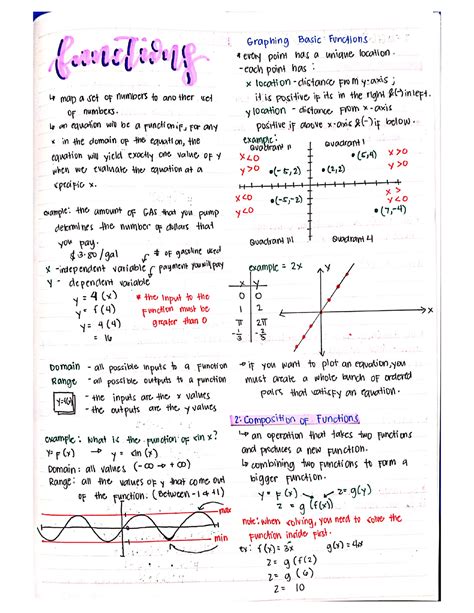 functions
↳ map a set of numbers to another set
of numbers.
↳ an equation will be a function if, for any
x in the domain of the equation, the
equation will yield exactly one value of y
when we evaluate the equation at a
specific x.
example: the amount of GAS that you pump
determines the number of dollars that
you pay.
$3.80/gal
# of gasoline used
x - independent variable
payment you will pay
y - dependent variable
y = 4(x)
y = f(4)
y = 4(4)
= 16
* the input to the
function must be
greater than 0
Domain - all possible inputs to a function
Range - all possible outputs to a function
- the inputs are the x values
- the outputs are the y values
example: What is the function of sin x?
y = f(x) → y = sin(x)
Domain: all values (-∞ → +∞)
Range: all the values of y that come out
of the function. (Between -1 & +1)
max
min
Graphing Basic Functions
* every point has a unique location.
- each point has:
x location - distance from y-axis;
it is positive if its in the right & (-) in left.
y location - distance from x-axis
positive if above x-axis & (-) if below.
example:
Quadrant II
Quadrant I
x<0
y>0
•(-5,2)
•(2,2)
•(5,4)
x>0
y>0
x<0
y<0
•(-5,-2)
•(7,-4)
x>
y<0
Quadrant III
Quadrant IV
example = 2x
x y
0 0
1 2
π 2π
y
x
→ if you want to plot an equation, you
must create a whole bunch of ordered
pairs that satisfy an equation.
2: Composition of Functions
↳ an operation that takes two functions
and produces a new function.
↳ combining two functions to form a
bigger function.
y = f(x) z = g(y)
z = g(f(x))
note: when solving, you need to solve the
function inside first.
ex: f(x) = 3x g(x) = 4x
z = g(f(2)
z = g(6)
z = 10